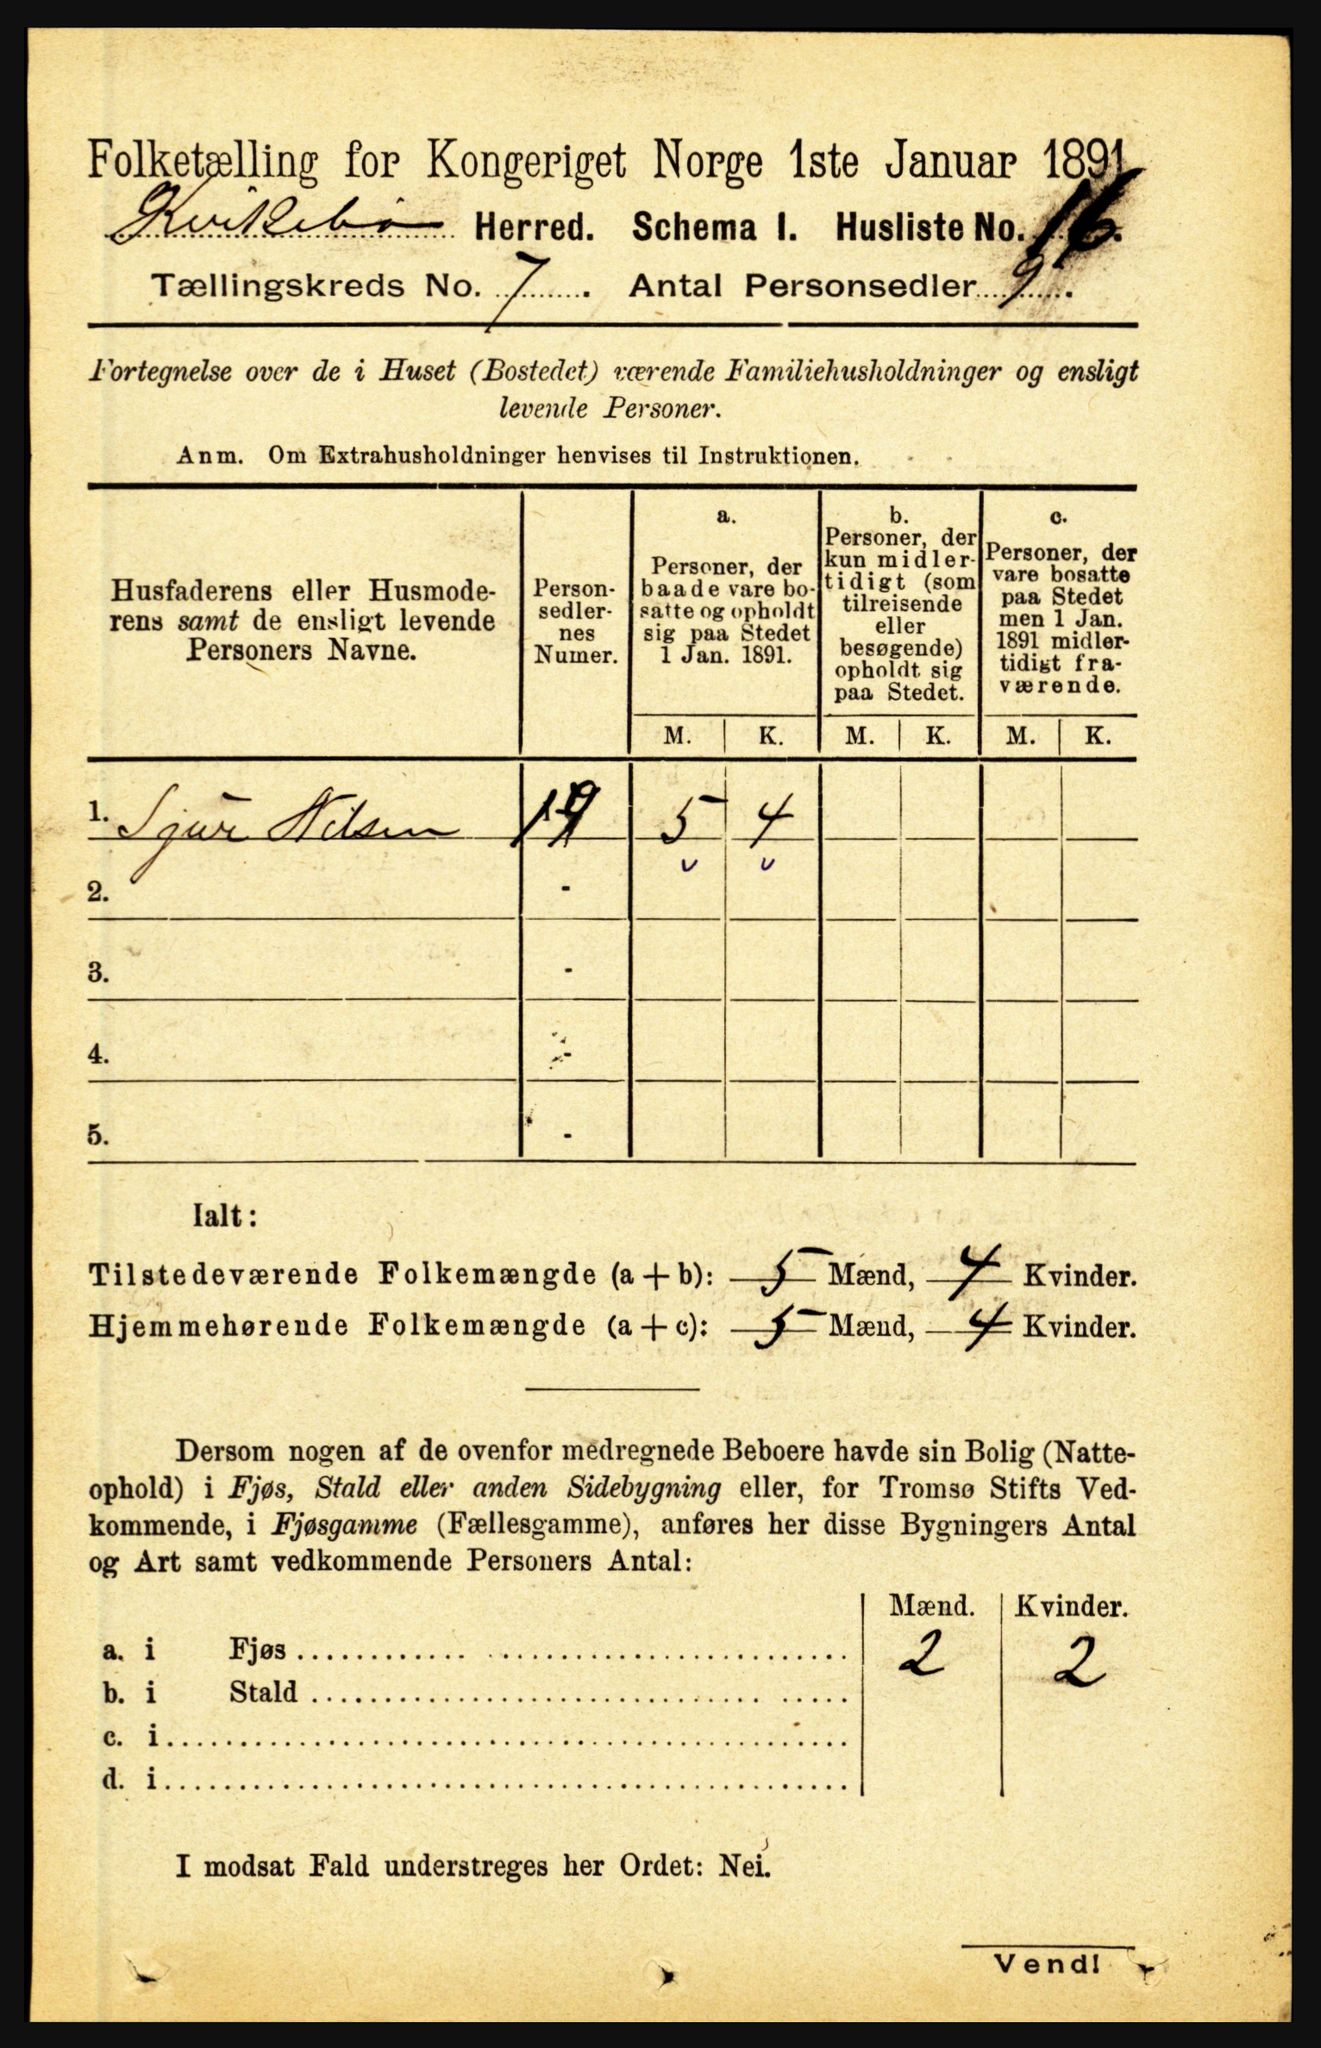 Folketælling for Kongeriget Norge 1ste Januar 1891.
Kvikebø Herred. Schema I. Husliste No. 16.
Tællingskreds No. 7. Antal Personsedler 9.
Fortegnelse over de i Huset (Bostedet) værende Familiehusholdninger og ensligt
levende Personer.
Anm. Om Extrahusholdninger henvises til Instruktionen.
Husfaderens eller Husmode-
rens samt de ensligt levende
Personers Navne.
Person-
sedler-
nes
Numer.
a.
Personer, der
baade vare bo-
satte og opholdt
sig paa Stedet
1 Jan. 1891.
b.
Personer, der
kun midler-
tidigt (som
tilreisende
eller
besøgende)
opholdt sig
paa Stedet.
c.
Personer, der
vare bosatte
paa Stedet
men 1 Jan.
1891 midler-
tidigt fra-
værende.
M. K. M. K. M. K.
1. Sjur Nilsen 1-9 5 4
2. -
3. -
4. -
5. -
Ialt:
Tilstedeværende Folkemængde (a + b): 5 Mænd, 4 Kvinder.
Hjemmehørende Folkemængde (a + c): 5 Mænd, 4 Kvinder.
Dersom nogen af de ovenfor medregnede Beboere havde sin Bolig (Natte-
ophold) i Fjøs, Stald eller anden Sidebygning eller, for Tromsø Stifts Ved-
kommende, i Fjøsgamme (Fællesgamme), anføres her disse Bygningers Antal
og Art samt vedkommende Personers Antal:
Mænd. Kvinder.
a. i Fjøs 2 2
b. i Stald
c. i
d. i
I modsat Fald understreges her Ordet: Nei.
Vend!